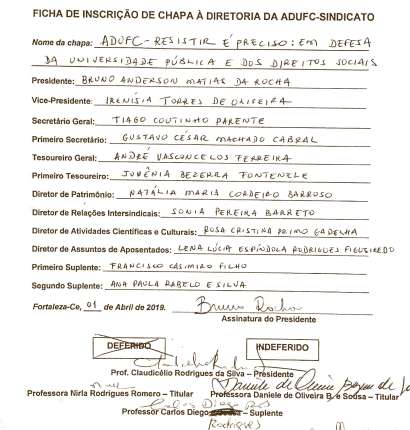 FICHA DE INSCRIÇÃO DE CHAPA À DIRETORIA DA ADUFC-SINDICATO
Nome da chapa: ADUFC-RESISTIR É PRECISO: EM DEFESA
DA UNIVERSIDADE PÚBLICA E DOS DIREITOS SOCIAIS
Presidente: BRUNO ANDERSON MATIAS DA ROCHA
Vice-Presidente: IRENÍSIA TORRES DE OLIVEIRA
Secretário Geral: TIAGO COUTINHO PARENTE
Primeiro Secretário: GUSTAVO CÉSAR MACHADO CABRAL
Tesoureiro Geral: ANDRÉ VASCONCELOS FERREIRA
Primeiro Tesoureiro: JUVÊNIA BEZERRA FONTENELE
Diretor de Patrimônio: NATÁLIA MARIA CORDEIRO BARROSO
Diretor de Relações Intersindicais: SONIA PEREIRA BARRETO
Diretor de Atividades Científicas e Culturais: ROSA CRISTINA PRIMO GADELHA
Diretor de Assuntos de Aposentados: LENA LÚCIA ESPÍNDOLA RODRIGUES FIGUEIREDO
Primeiro Suplente: FRANCISCO CASIMIRO FILHO
Segundo Suplente: ANA PAULA RABELO E SILVA
Fortaleza-Ce, 01 de Abril de 2019. Bruno Rocha
Assinatura do Presidente
DEFERIDO INDEFERIDO
Prof. Claudicélio Rodrigues da Silva – Presidente
Daniele de Oliveira
Professora Nirla Rodrigues Romero – Titular Professora Daniele de Oliveira B. e Sousa – Titular
Carlos Diego
Professor Carlos Diego – Suplente
Rodrigues